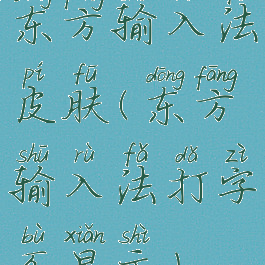 东方输入法
pí fū dōng fāng
皮肤(东方
shū rù fǎ dǎ zì
输入法打字
bù xiǎn shì
不显示)